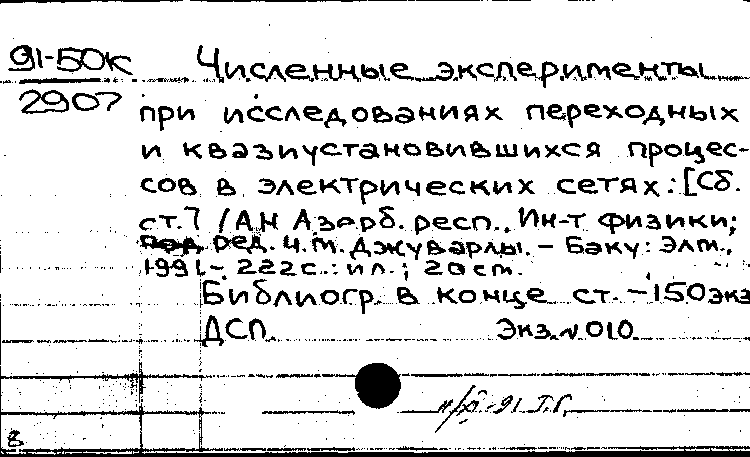 91-50К
2907
Численные эксперименты
при исследованиях переходных
и квазиустановившихся процес-
сов в электрических сетях: [Сб.
ст.] /АН Азерб. респ., Ин-т физики;
ред. Ч.М. Джуварлы. – Баку: Элм.,
1991. – 222с.: ил.; 20см.
Библиогр. в конце ст. – 150экз
ДСП. Экз. № 010.
91 Т.Г.
8.